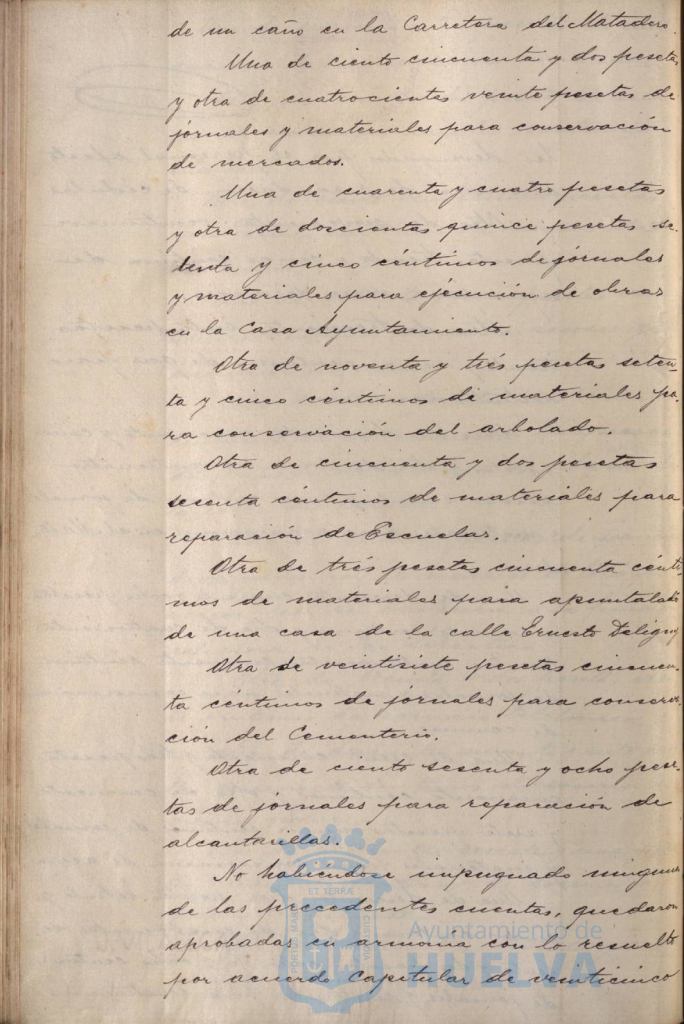 de un caño en la Carretera del Matadero.
Una de ciento cincuenta y dos pesetas
y otra de cuatrocientas veinte pesetas de
jornales y materiales para conservación
de mercados.
Una de cuarenta y cuatro pesetas
y otra de doscientas quince pesetas se-
tenta y cinco céntimos de jórnales
y materiales para ejécución de obras
en la Casa Ayuntamiento.
Otra de noventa y trés pesetas seten-
ta y cinco céntimos de materiales pa-
ra conservación del arbolado.
Otra de cincuenta y dos pesetas
sesenta céntimos de materiales para
reparación de Escuelas.
Otra de trés pesetas cincuenta cénti-
mos de materiales para
de una casa de la calle Ernesto Deligny
Otra de veintisiete pesetas cincuen-
ta céntimos de jórnales para conserva-
ción del Cementerio.
Otra de ciento sesenta y ocho pese-
tas de jórnales para reparación de
alcantarillas.
No habiéndose impugnado ninguna
de las precedentes cuentas, quedaron
aprobadas en armonia con lo resuelto
por acuerdo Capitular de veinticinco
ET TERRAE
PORTUS MARIS
CUSTODIA
Ayuntamiento de
HUELVA